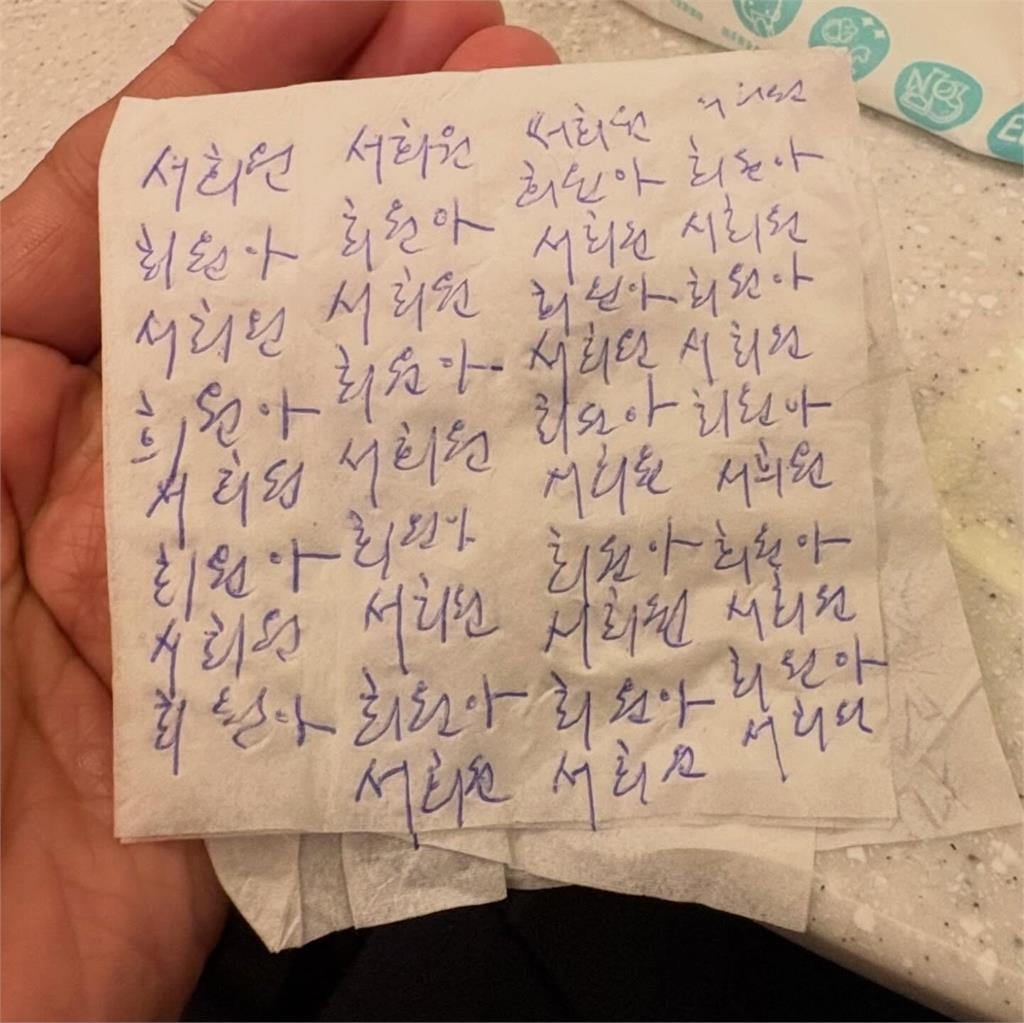 서희원
희원아
서희원
희원아
서희원
희원아
서희원
희원아
서희원
희원아
서희원
희원아
서희원
희원아
서희원
희원아
서희원
서희원
희원아
서희원
희원아
서희원
희원아
서희원
희원아
서희원
희원아
서희원
희원아
서희원
희원아
서희원
희원아
서희원
희원아
서희원
희원아
서희원
희원아
서희원
희원아
서희원